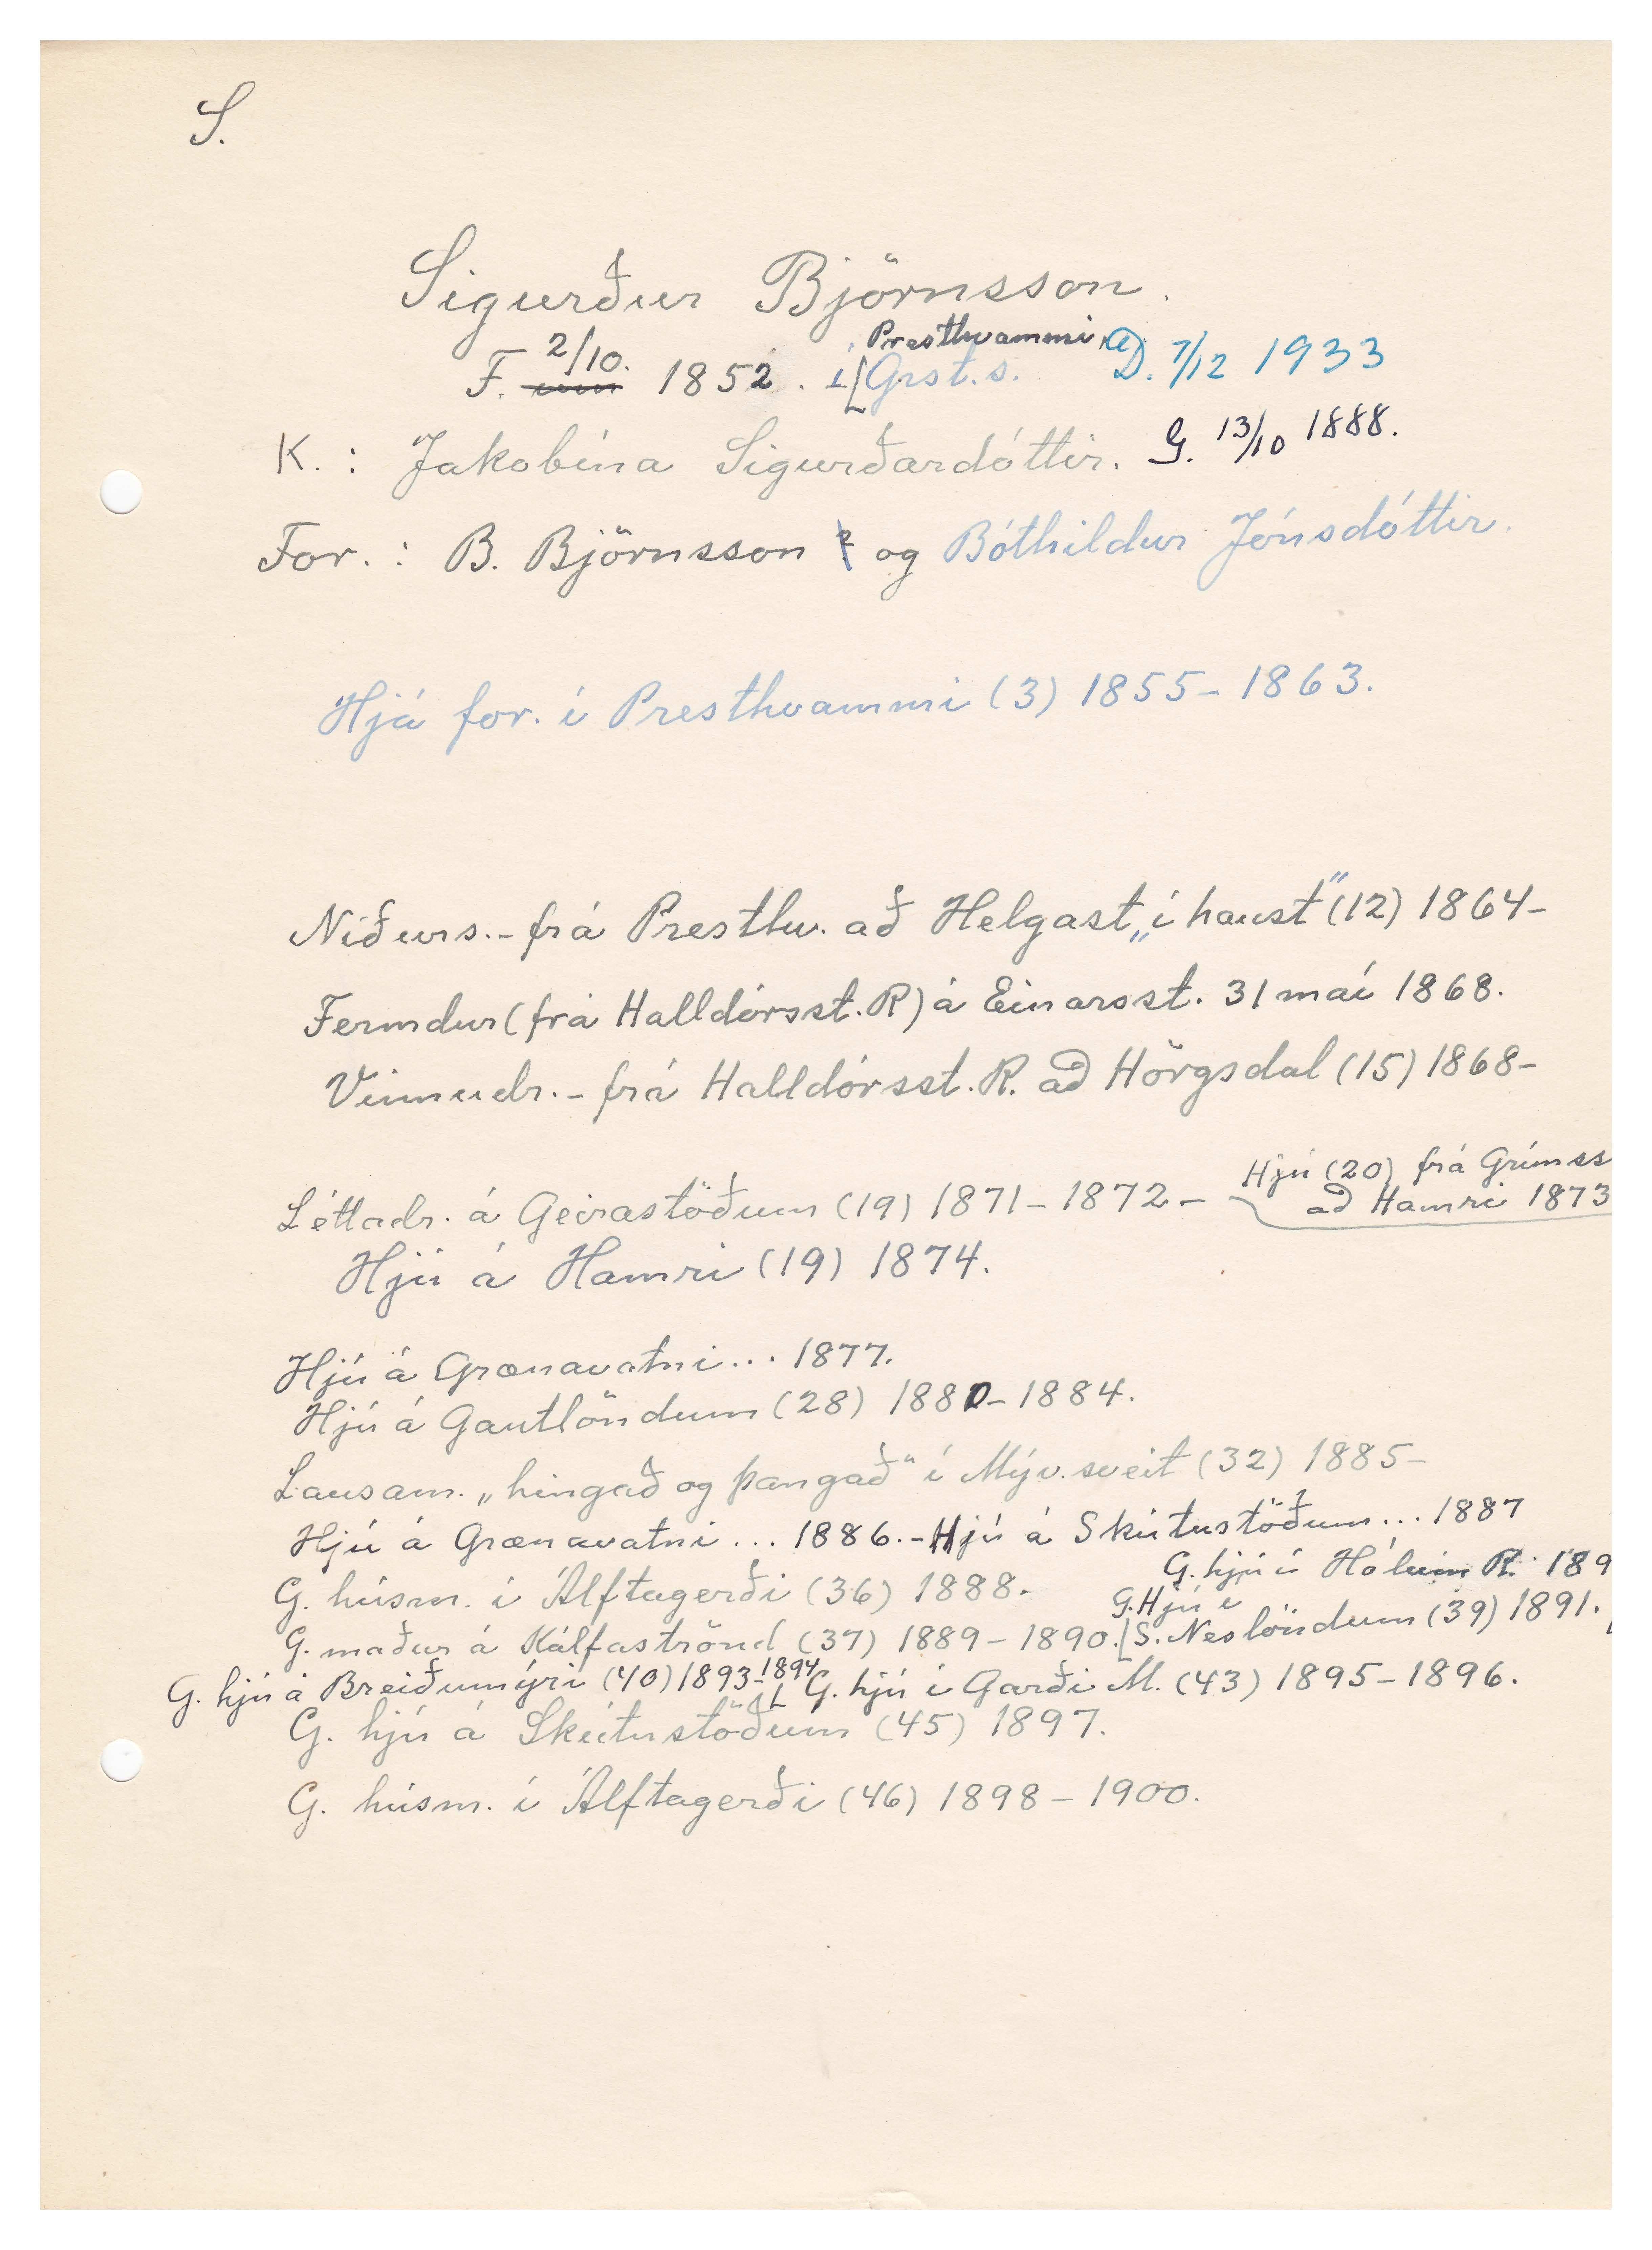 S.
Sigurður Björnsson.
F. 2/10. 1852. í [Presthvammi, Grst.s. D. 7/12 1933
K.: Jakobína Sigurðardóttir. G. 13/10 1888.
For.: B. Björnsson og Bóthildur Jónsdóttir.
Hjá for. í Presthvammi (3) 1855-1863.
Niðurs.- frá Presthv. að Helgast. „í haust“ (12) 1864-
Fermdur (frá Halldórsst. R) á Einarsst. 31 maí 1868.
Vinnudr.- frá Halldórsst. R. að Hörgsdal (15) 1868-
Hjú (20) frá Grímss
Léttadr. á Geirastöðum (19) 1871-1872- að Hamri 1873
Hjú á Hamri (19) 1874.
Hjú á Grænavatni... 1877.
Hjú á Gautlöndum (28) 1880-1884.
Lausam. „hingað og þangað“ í Mýv.sveit (32) 1885-
Hjú á Grænavatni... 1886.- Hjú á Skútustöðum... 1887
G. hjú í Hólum R. 189
G. húsm. í Álftagerði (36) 1888.
G. maður á Kálfaströnd (37) 1889-1890. [G. Hjú í S. Neslöndum (39) 1891.
G. hjú á Breiðumýri (40) 1893-1894 G. hjú í Garði M. (43) 1895-1896.
G. hjú á Skútustöðum (45) 1897.
G. húsm. í Álftagerði (46) 1898-1900.